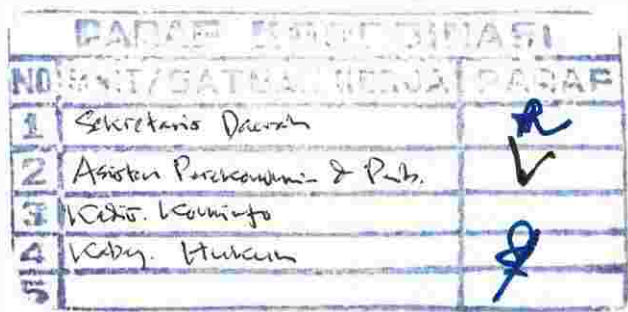 PARAF KOORDINASI
NO UNIT/SATUAN KERJA PARAF
1 Sekretaris Daerah
2 Asisten Perekonomian & Pemb.
3 Kadis. Kominfo
4 Kabag. Hukum
5